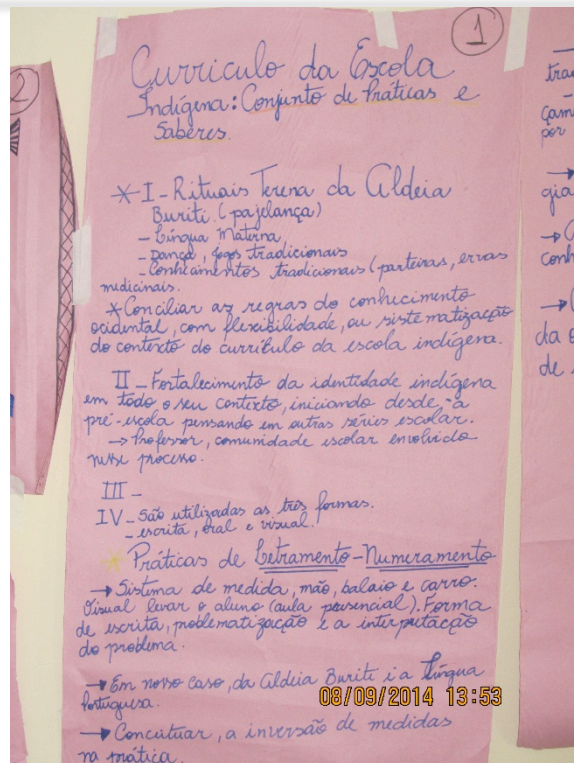 1
Curriculo da Escola
Indígena: Conjunto de Práticas e
Saberes.
* I - Rituais Terena da Aldeia
Buriti. (pajelança)
- Língua Materna,
- Dança, jogos tradicionais
- Conhecimentos tradicionais (parteiras, ervas
midicinais.
* Conciliar as regras do conhecimento
ocidental, com flexibilidade, ou sistematização
do contexto do currículo da escola indígena.
II - Fortalecimento da identidade indígena
em todo o seu contexto, iniciando desde a
pré-escola pensando em outras séries escolar.
→ Professor, comunidade escolar envolvido
nesse processo.
III -
IV - São utilizadas as três formas.
- escrita, oral e visual.
* Práticas de Letramento - Numeramento
→ Sistema de medida, mão, balaio e carro.
Visual levar o aluno (aula presencial). Forma
de escrita, problematização e a interpretação
do problema.
→ Em nosso caso, da Aldeia Buriti é a Língua
Portuguesa.
→ Conceituar, a inversão de medidas
na prática.
2
trad
çam
por
→
gia
→
conh
→
da
de
08/09/2014 13:53